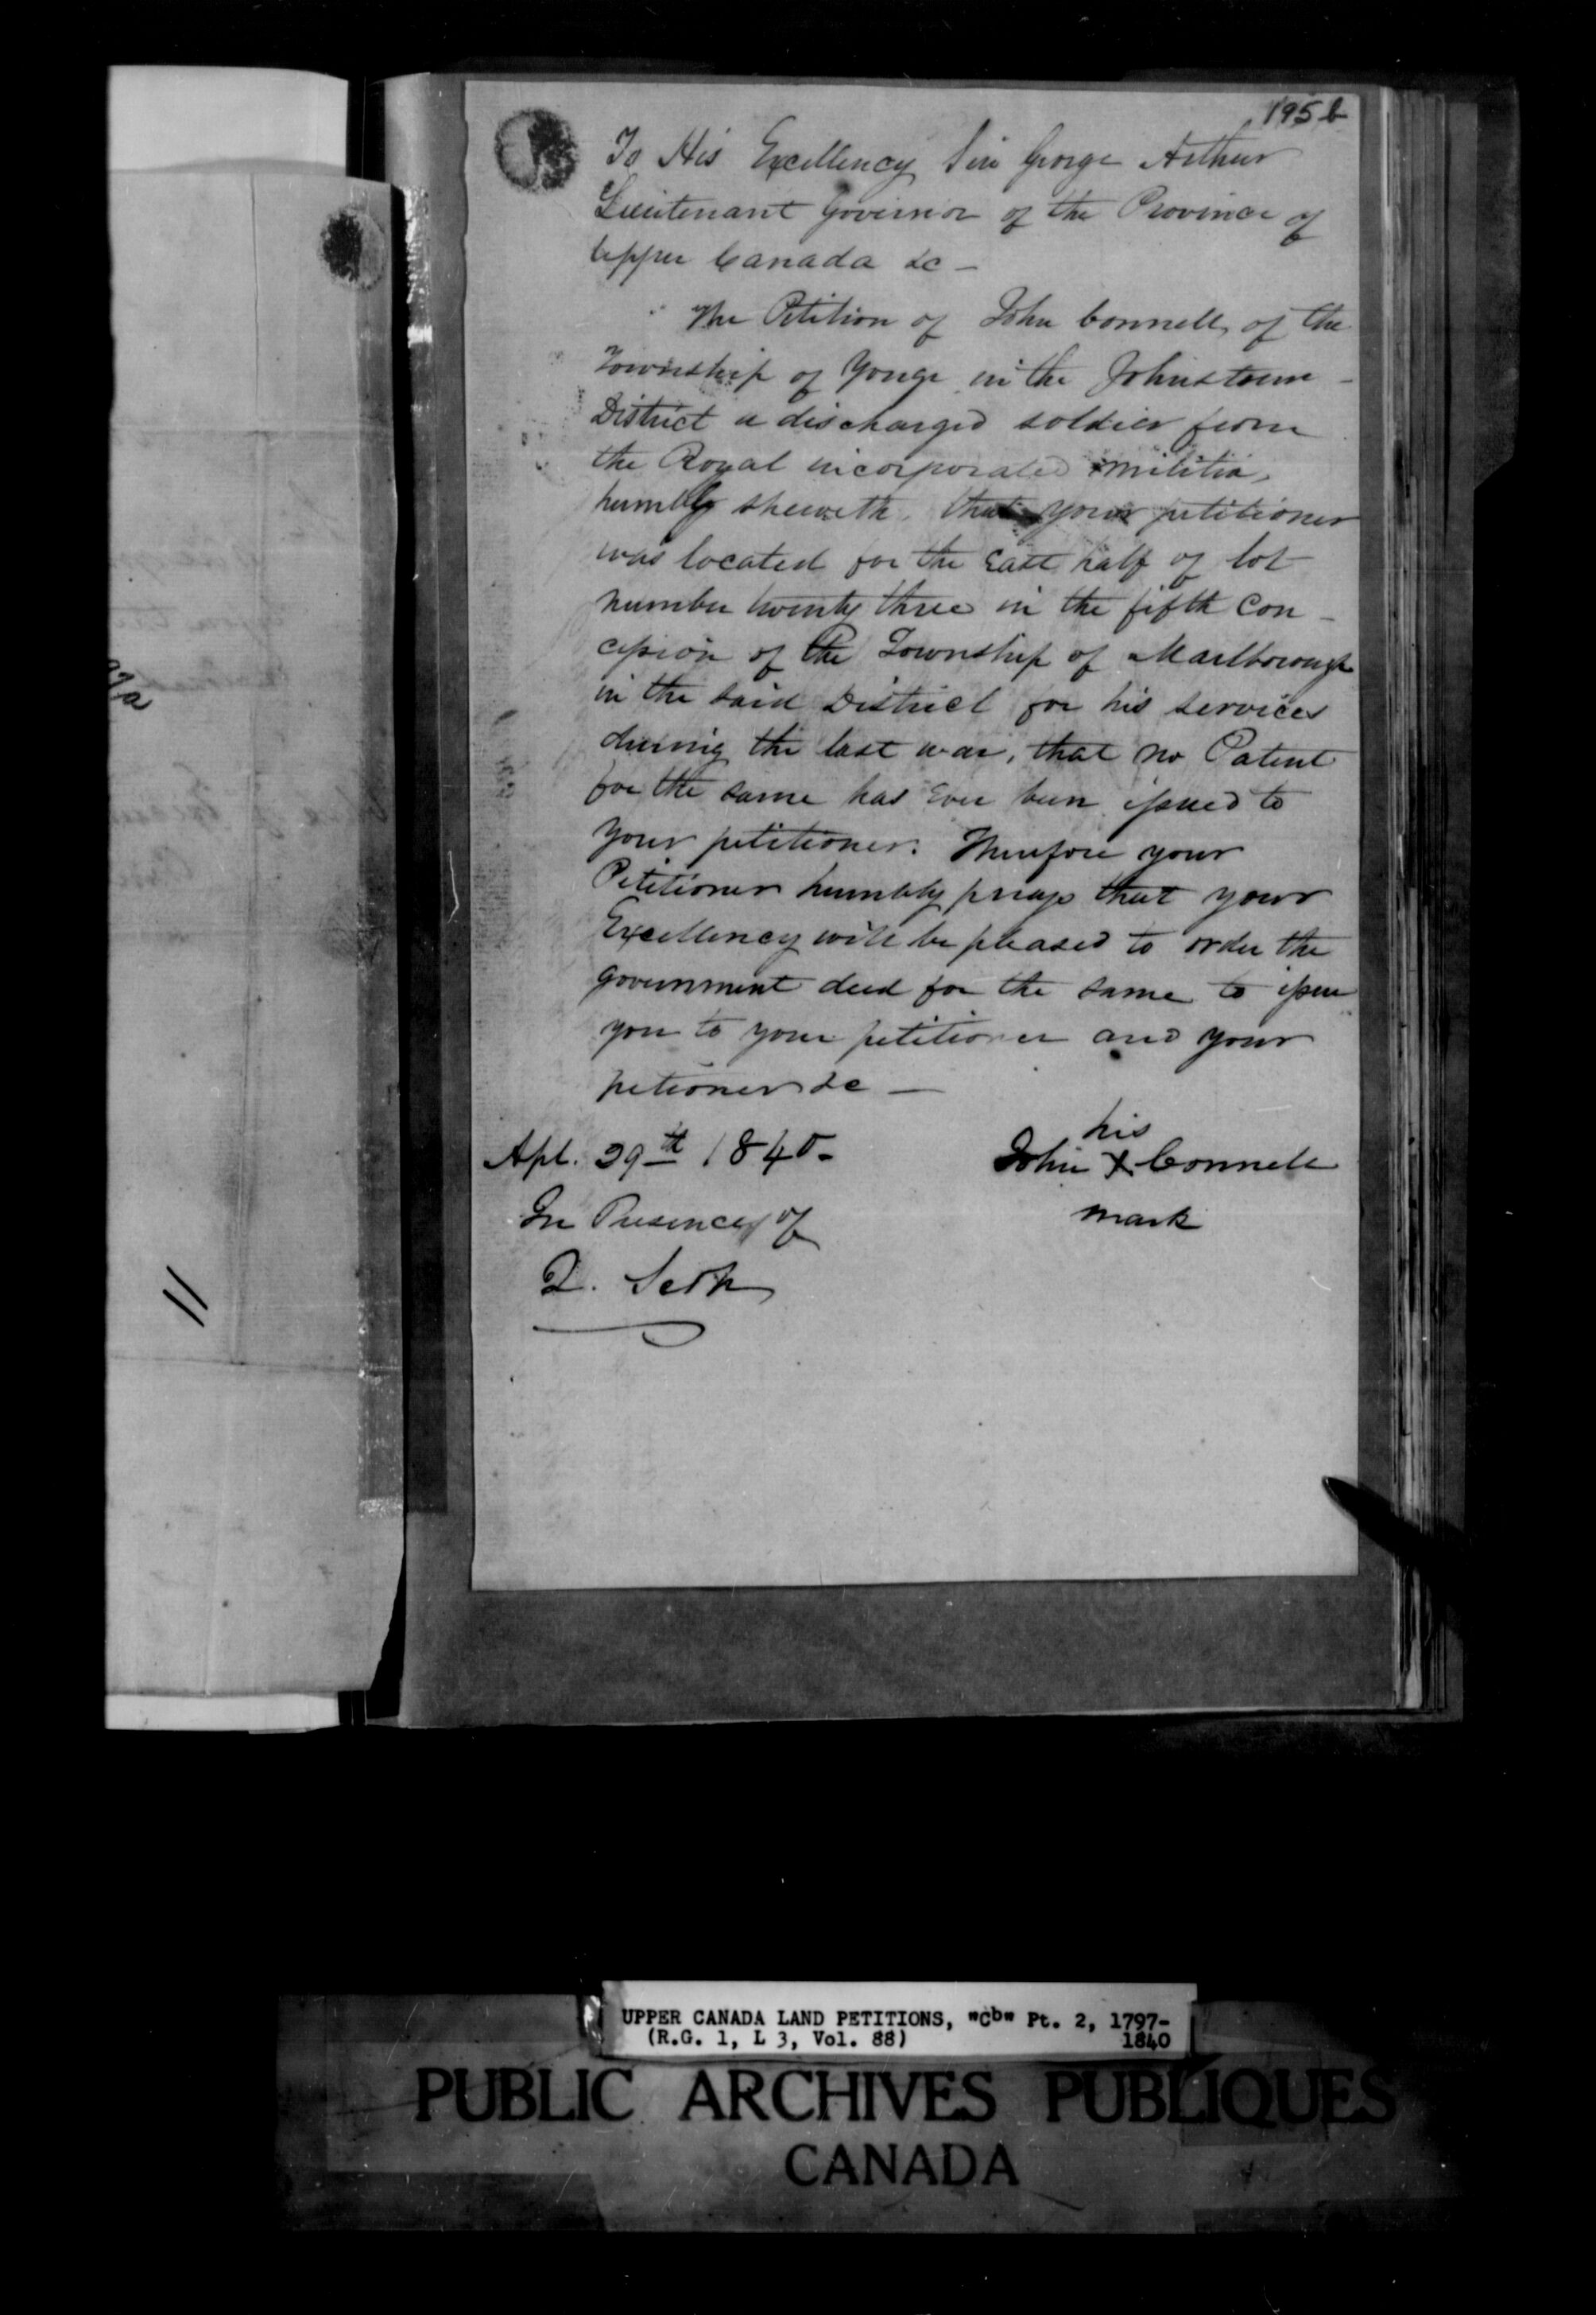 195b
To His Excellency Sir George Arthur
Lieutenant Governor of the Province of
Upper Canada &c –
The Petition of John Connell, of the
Township of Yonge in the Johnstown –
District a discharged soldier from
the Royal incorporated militia,
humbly sheweth, that your petitioner
was located for the East half of lot
number twenty three in the fifth Con –
cession of the Township of Marlborough
in the said District for his services
during the last war, that no Patent
for the same has ever been issued to
your petitioner. Therefore your
Petitioner humbly prays that your
Excellency will be pleased to order the
government deed for the same to issue
you to your petitioner and your
petioner &c —
his
Apl. 29th 1840 – John X Connell
In Presence of mark
11
UPPER CANADA LAND PETITIONS, "Cb" Pt. 2, 1797-
(R.G. 1, L 3, Vol. 88) 1840
PUBLIC ARCHIVES PUBLIQUES
CANADA